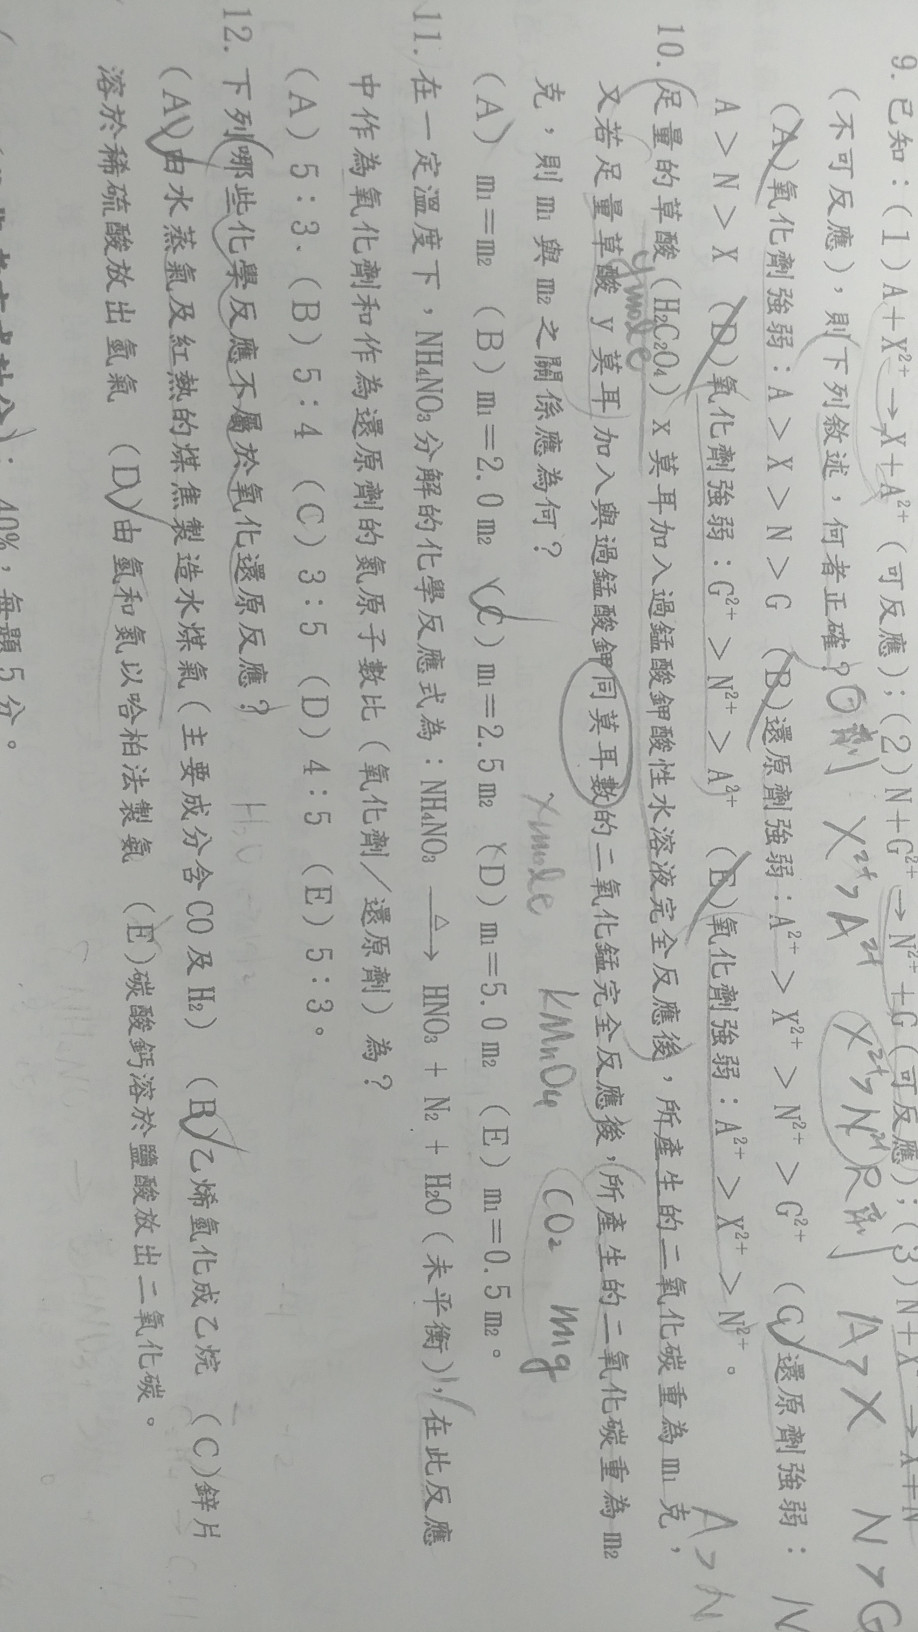 9. 已知：(1) A + X²⁺ → X + A²⁺ (可反應)；(2) N + G²⁺ → N²⁺ + G (可反應)；(3) N + X²⁺ → X + N²⁺
(不可反應)，則下列敘述，何者正確？ O劑 X²⁺>A²⁺ X²⁺>N²⁺ R劑 A>X N>G
(A) 氧化劑強弱：A > X > N > G (B) 還原劑強弱：A²⁺ > X²⁺ > N²⁺ > G²⁺ (C) 還原劑強弱： N
A > N > X (D) 氧化劑強弱：G²⁺ > N²⁺ > A²⁺ (E) 氧化劑強弱：A²⁺ > X²⁺ > N²⁺。 A > N
10. 足量的草酸 (H₂C₂O₄) x 莫耳加入過錳酸鉀酸性水溶液完全反應後，所產生的二氧化碳重為 m₁ 克，
ymole
又若足量草酸 y 莫耳加入與過錳酸鉀同莫耳數的二氧化錳完全反應後，所產生的二氧化碳重為 m₂
克，則 m₁ 與 m₂ 之關係應為何？
xmole KMnO₄ CO₂ mg
(A) m₁=m₂ (B) m₁=2.0 m₂ (C) m₁=2.5 m₂ (D) m₁=5.0 m₂ (E) m₁=0.5 m₂。
11. 在一定溫度下，NH₄NO₃分解的化學反應式為：NH₄NO₃ —△→ HNO₃ + N₂ + H₂O (未平衡)，在此反應
中作為氧化劑和作為還原劑的氮原子數比 (氧化劑／還原劑) 為？
(A) 5：3、(B) 5：4 (C) 3：5 (D) 4：5 (E) 5：3。
12. 下列哪些化學反應不屬於氧化還原反應？
(A) 由水蒸氣及紅熱的煤焦製造水煤氣 (主要成分含 CO 及 H₂) (B) 乙烯氫化成乙烷 (C) 鋅片
溶於稀硫酸放出氫氣 (D) 由氫和氮以哈柏法製氨 (E) 碳酸鈣溶於鹽酸放出二氧化碳。
40%，每題 5 分。